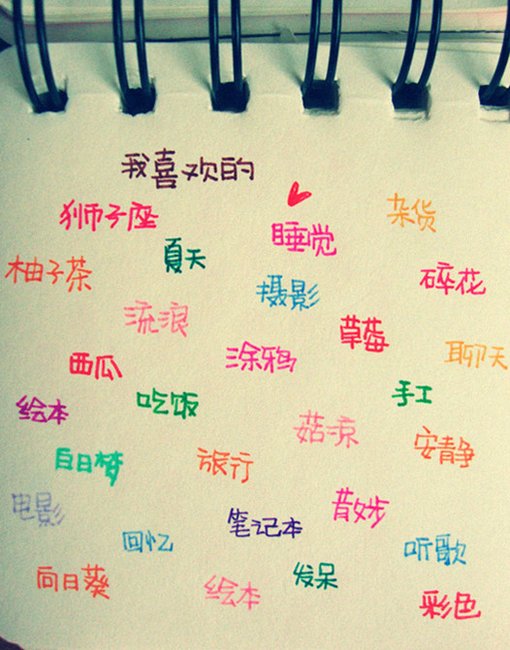 我喜欢的
狮子座
睡觉
杂货
柚子茶
夏天
摄影
碎花
流浪
草莓
西瓜
涂鸦
聊天
绘本
吃饭
手工
菇凉
安静
白日梦
旅行
电影
笔记本
散步
回忆
听歌
向日葵
绘本
发呆
彩色